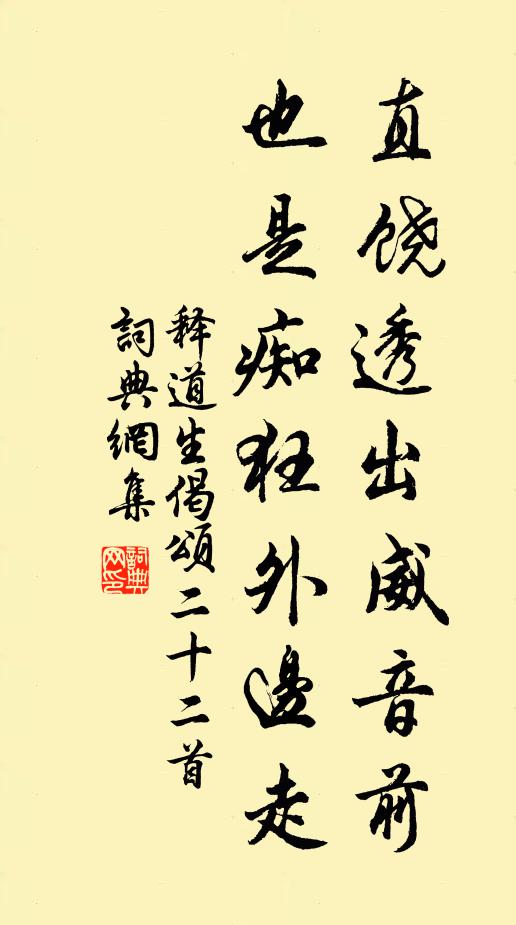 直饶透出威音前
也是痴狂外邊走
释道生偈頌二十二首
詞典網集
詞典网印